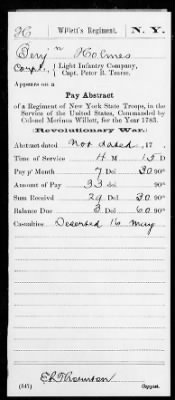 H Willett's Regiment. N. Y.
Benj n Holmes
Corpl, Light Infantry Company,
Capt. Peter B. Tearse.
Appears on a
Pay Abstract
of a Regiment of New York State Troops, in the
Service of the United States, Commanded by
Colonel Merinus Willett, for the Year 1783.
Revolutionary War.
Abstract dated not dated, 17 .
Time of Service 4 M 13 D
Pay p' Month 7 Dol 30 90th
Amount of Pay 33 dol 90th
Sum Received 29 Dol 30 90th
Balance Due 3 Dol 60 90th
Casualties Deserted 16 May
(547) Copyist.